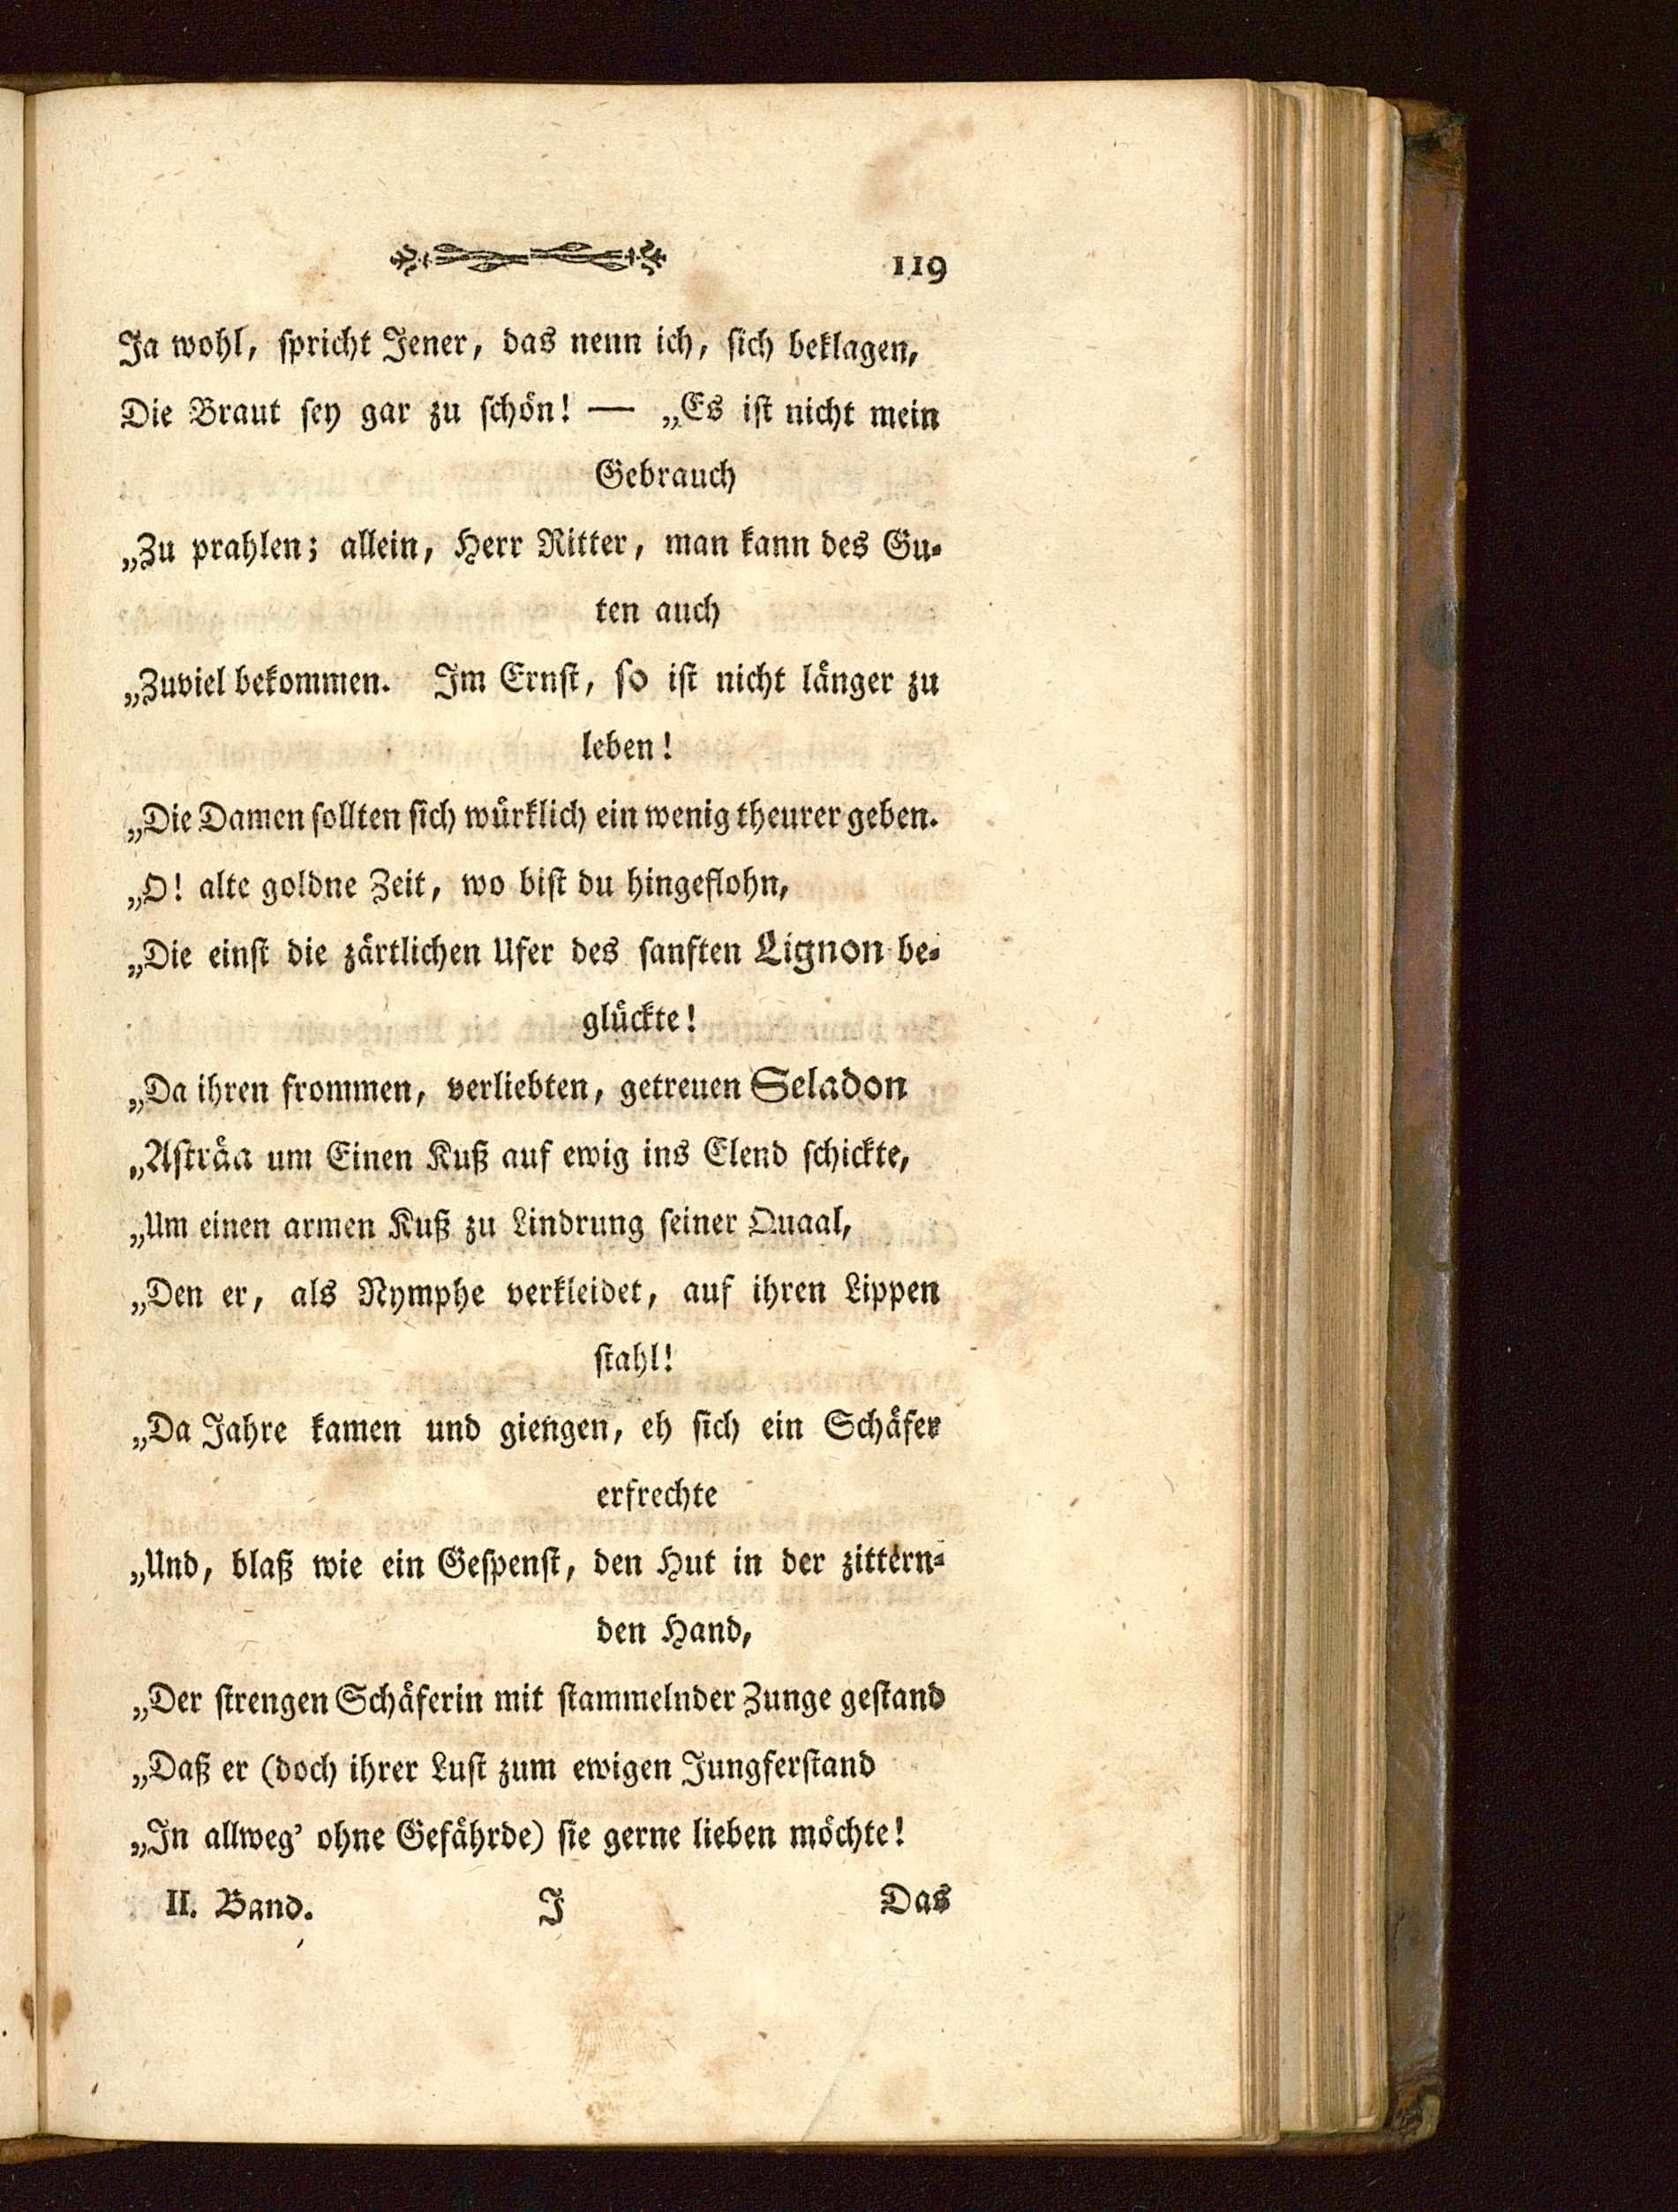 119
Ja wohl, ſpricht Jener, das nenn ich, ſich beklagen,
Die Braut ſey gar zu ſchoͤn! — „Es iſt nicht mein
Gebrauch
„Zu prahlen; allein, Herr Ritter, man kann des Gu-
ten auch
„Zuviel bekommen. Im Ernſt, ſo iſt nicht laͤnger zu
leben!
„Die Damen ſollten ſich wuͤrklich ein wenig theurer geben.
„O! alte goldne Zeit, wo biſt du hingeflohn,
„Die einſt die zaͤrtlichen Ufer des ſanften Lignon be-
gluͤckte!
„Da ihren frommen, verliebten, getreuen Seladon
„Aſtraͤa um Einen Kuß auf ewig ins Elend ſchickte,
„Um einen armen Kuß zu Lindrung ſeiner Quaal,
„Den er, als Nymphe verkleidet, auf ihren Lippen
ſtahl!
„Da Jahre kamen und giengen, eh ſich ein Schaͤfer
erfrechte
„Und, blaß wie ein Geſpenſt, den Hut in der zittern-
den Hand,
„Der ſtrengen Schaͤferin mit ſtammelnder Zunge geſtand
„Daß er (doch ihrer Luſt zum ewigen Jungferſtand
„In allweg' ohne Gefaͤhrde) ſie gerne lieben moͤchte!
II. Band. J Das